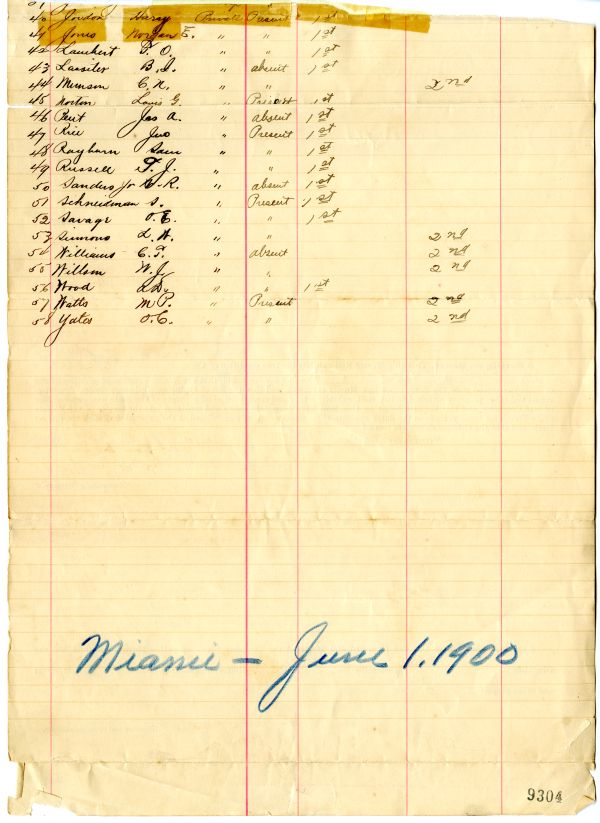 40 Jordon Harry Private Present 1st
41 Jones Morgan E. " " 1st
42 Lambert T. O. " " 1st
43 Lassiter B. I. " absent 1st
44 Munson C. N. " " 2nd
45 Norton Louis G. " Present 1st
46 Pent Jas A. " absent 1st
47 Rice Jno " Present 1st
48 Rayburn Sam " " 1st
49 Russell T. J. " " 1st
50 Sanders Jr W. R. " absent 1st
51 Schneidman S. " Present 1st
52 Savage O. E. " " 1st
53 Simmons L. W. " " 2nd
54 Williams C. F. " absent 2nd
55 Willson W. J. " " 2nd
56 Wood " " 1st
57 Watts M P. " Present 2nd
58 Yates O. C. " " 2nd
Miami - June 1. 1900
9304